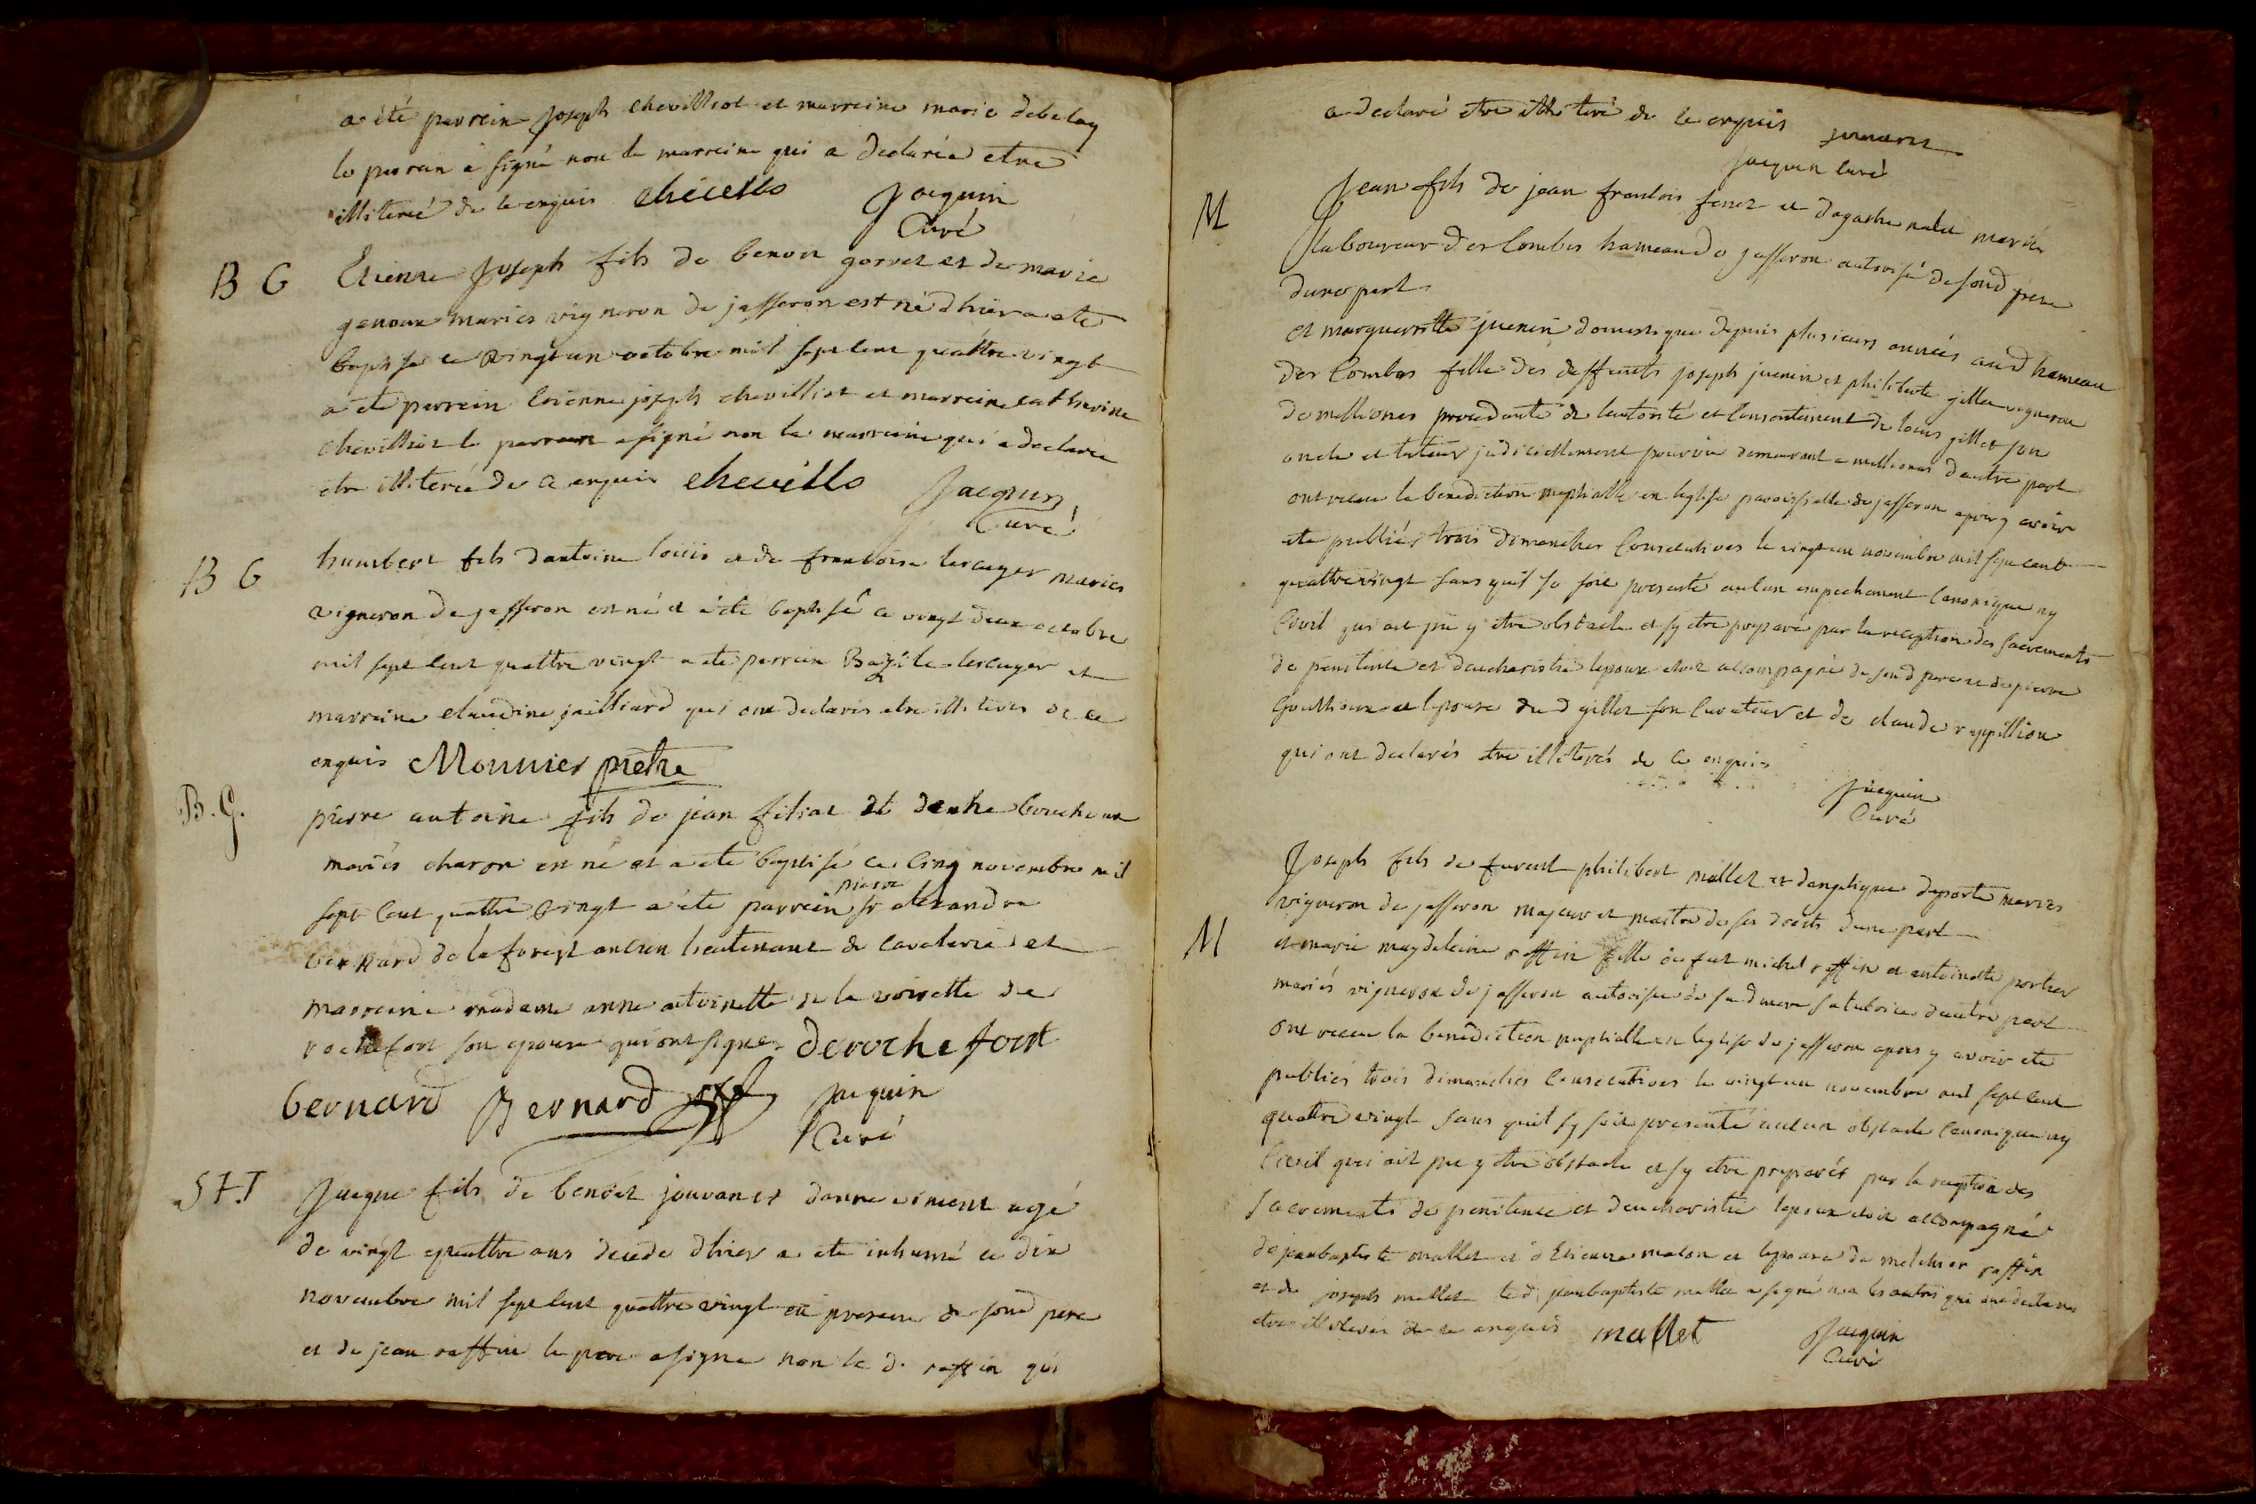 a été parrein Joseph chevilliot et marreine marie debelay
le parrein a signé non la marreine qui a declarée etre
illiterée de ce enquis chevillo Jacquin
Curé
B G Etienne Joseph fils de benoit gorret et de marie
genoux mariés vigneron de jasseron est né dhier a ete
baptisé ce vingt un octobre mil sept cent quattre vingt
a ete parrein etienne joseph chevilliot et marreine catherine
chevilliot le parrein a signé non la marreine qui a declarée
etre illiterée de ce enquis chevillo Jacquin
Curé
B G humbert fils dantoine louis et de francoise lescuyer mariés
vigneron de jasseron est né et a ete baptisé ce vingt deux octobre
mil sept cent quattre vingt a ete parrein Bazile lescuyer et
marreine claudine jailliard qui ont declarés etre illiterés de ce
enquis Monnier prêtre
B. G. pierre antoine fils de jean filiat et boucheux
mariés charon est né et a ete baptisé ce cinq novembre mil
sept cent quattre vingt a été parrein sr pierre alexandre
bernard de la forest ancien lieutenant de cavalerie et
marreine madame anne antoinette de la de
rochefort son epouse qui ont signés derochefort
bernard Bernard Jacquin
Curé
S F.J Jacque fils de benoit jouvanet danne agé
de vingt quattre ans decedé dhier a ete inhumé ce dix
novembre mil sept cent quattre vingt en presence de soud pere
et de jean raffin le pere a signé non le d. raffin qui
a declaré etre illiteré de ce enquis
Jacquin curé
M Jean fils de jean francois feret et dagathe mariés
laboureur des Combes hameau de jasseron autorisé de soud pere
dune part
et margueritte juenin domestique depuis plusieurs années aud hameau
des Combes fille des deffunts joseph juenin et philiberte gillet vigneron
de mellionas procedante de lautorité et consentement de louis gillet son
oncle et tuteur judiciellement pourvu demeurant a mellionas dautre part
ont receu la benediction nuptialle en leglise paroissialle de jasseron apres y avoir
ete publiés trois dimanches consecutives le vingt un novembre mil sept cent
quattre vingt sans quil se soit presenté aucun empechement canonique ny
Civil qui ait pu y etre obstacle et sy etre preparé par la reception des sacrements
de penitence et deucharistie lepoux etoit accompagné de soud pere et de pierre
et lepouse du d gillet son curateur et de claude rappillion
qui ont declarés etre illiterés de ce enquis
Jacquin
Curé
Joseph fils de furent philibert mallet et dangelique deporte mariés
vigneron de jasseron majeur et maitre de ses droits dune part
M et marie magdeleine raffin fille de fut michel raffin et antoinette portier
mariés vigneron de jasseron autorisée de sad mere sa tutrice dautre part
ont receu la benediction nuptialle en leglise de jasseron apres y avoir ete
publiés trois dimanches consecutives le vingt un novembre mil sept cent
quattre vingt sans quil sy soit presenté aucun obstacle canonique ny
Civil qui ait pu y etre obstacle et sy etre preparés par la reception des
sacrements de penitence et deucharistie lepoux etoit accompagné
de jeanbaptiste mallet et dEtienne malon et lepouse de melchior raffin
et de joseph mallet led. jeanbaptiste mallet a signé non les autres qui ont declarés
etre illiterés de ce enquis mallet Jacquin
Curé